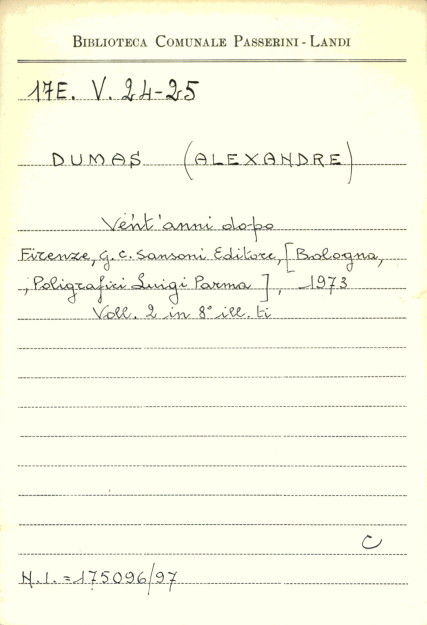 BIBLIOTECA COMUNALE PASSERINI - LANDI
17E. V. 24-25
DUMAS (ALEXANDRE)
Vent'anni dopo
Firenze, G. C. Sansoni Editore, [Bologna,
, Poligrafici Luigi Parma], 1973
Voll. 2 in 8° ill. ti
C
N. I. = 175096/97